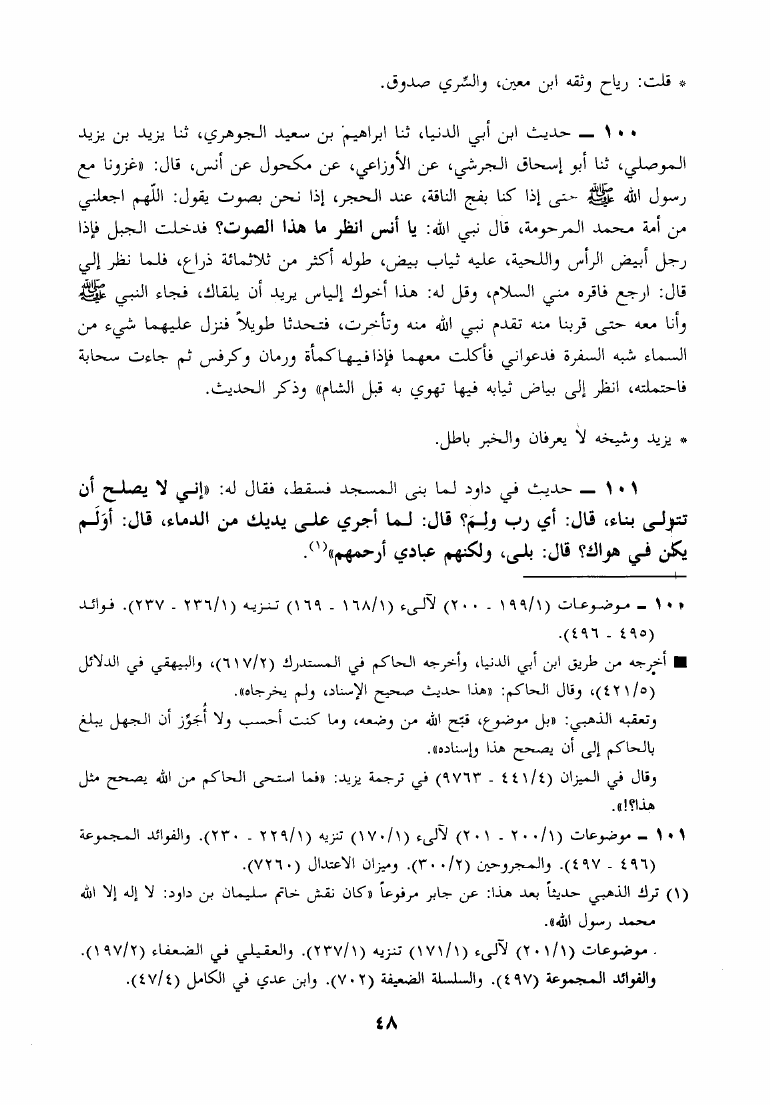 * قلت: رياح وثقه ابن معين، والسَّري صدوق.
١٠٠ ــ حديث ابن أبي الدنيا، ثنا ابراهيم بن سعيد الجوهري، ثنا يزيد بن يزيد
الموصلي، ثنا أبو إسحاق الجرشي، عن الأوزاعي، عن مكحول عن أنس، قال: «غزونا مع
رسول الله ﷺ حتى إذا كنا بفج الناقة، عند الحجر، إذا نحن بصوت يقول: اللَّهم اجعلني
من أمة محمد المرحومة، قال نبي الله: يا أنس انظر ما هذا الصوت؟ فدخلت الجبل فإذا
رجل أبيض الرأس واللحية، عليه ثياب بيض، طوله أكثر من ثلاثمائة ذراع، فلما نظر إلي
قال: ارجع فاقره مني السلام، وقل له: هذا أخوك إلياس يريد أن يلقاك، فجاء النبي ﷺ
وأنا معه حتى قربنا منه تقدم نبي الله منه وتأخرت، فتحدثا طويلاً فنزل عليهما شيء من
السماء شبه السفرة فدعواني فأكلت معهما فإذا فيها كمأة ورمان وكرفس ثم جاءت سحابة
فاحتملته، انظر إلى بياض ثيابه فيها تهوي به قبل الشام» وذكر الحديث.
* يزيد وشيخه لا يعرفان والخبر باطل.
١٠١ ــ حديث في داود لما بنى المسجد فسقط، فقال له: «إني لا يصلح أن
تتولى بناء، قال: أي رب ولِمَ؟ قال: لما أجري على يديك من الدماء، قال: أوَلَم
يكن في هواك؟ قال: بلى، ولكنهم عبادي أرحمهم»(١).
١٠٠ ــ موضوعات (١٩٩/١ ـ ٢٠٠) لآلىء (١٦٨/١ ـ ١٦٩) تنزيه (٢٣٦/١ ـ ٢٣٧). فوائد
(٤٩٥ ـ ٤٩٦).
■ أخرجه من طريق ابن أبي الدنيا، وأخرجه الحاكم في المستدرك (٦١٧/٢)، والبيهقي في الدلائل
(٤٢١/٥)، وقال الحاكم: «هذا حديث صحيح الإسناد، ولم يخرجاه».
وتعقبه الذهبي: «بل موضوع، قبّح الله من وضعه، وما كنت أحسب ولا أُجَوِّز أن الجهل يبلغ
بالحاكم إلى أن يصحح هذا وإسناده».
وقال في الميزان (٤٤١/٤ ـ ٩٧٦٣) في ترجمة يزيد: «فما استحى الحاكم من الله يصحح مثل
هذا؟!».
١٠١ ــ موضوعات (٢٠٠/١ ـ ٢٠١) لآلىء (١٧٠/١) تنزيه (٢٢٩/١ ـ ٢٣٠). والفوائد المجموعة
(٤٩٦ ـ ٤٩٧). والمجروحين (٣٠٠/٢). وميزان الاعتدال (٧٢٦٠).
(١) ترك الذهبي حديثاً بعد هذا: عن جابر مرفوعاً «كان نقش خاتم سليمان بن داود: لا إله إلا الله
محمد رسول الله».
. موضوعات (٢٠١/١) لآلىء (١٧١/١) تنزيه (٢٣٧/١). والعقيلي في الضعفاء (١٩٧/٢).
والفوائد المجموعة (٤٩٧). والسلسلة الضعيفة (٧٠٢). وابن عدي في الكامل (٤٧/٤).
٤٨